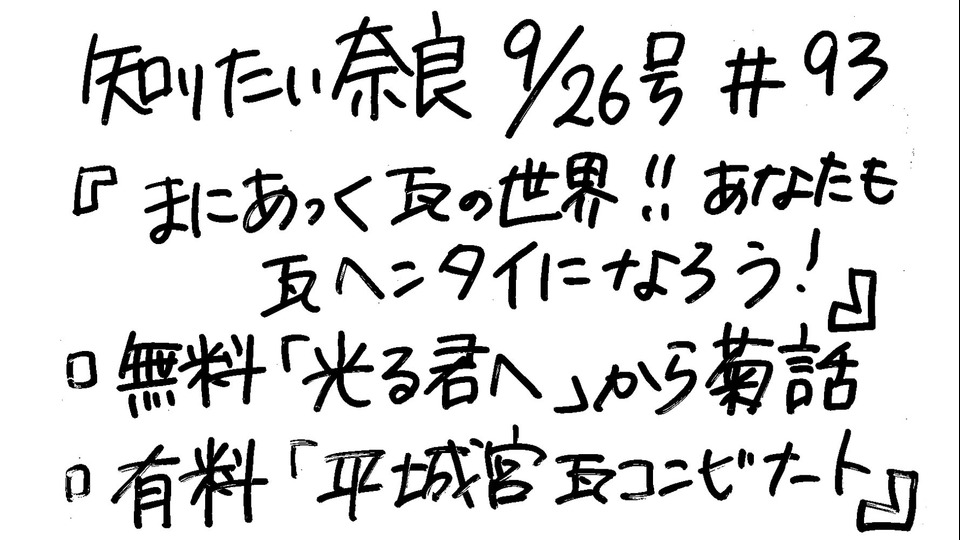 知りたい奈良 9/26号 #93
『まにあっく瓦の世界!!あなたも
瓦ヘンタイになろう!』
▫無料「光る君へ」から菊話
▫有料「平城宮瓦コンビナート』